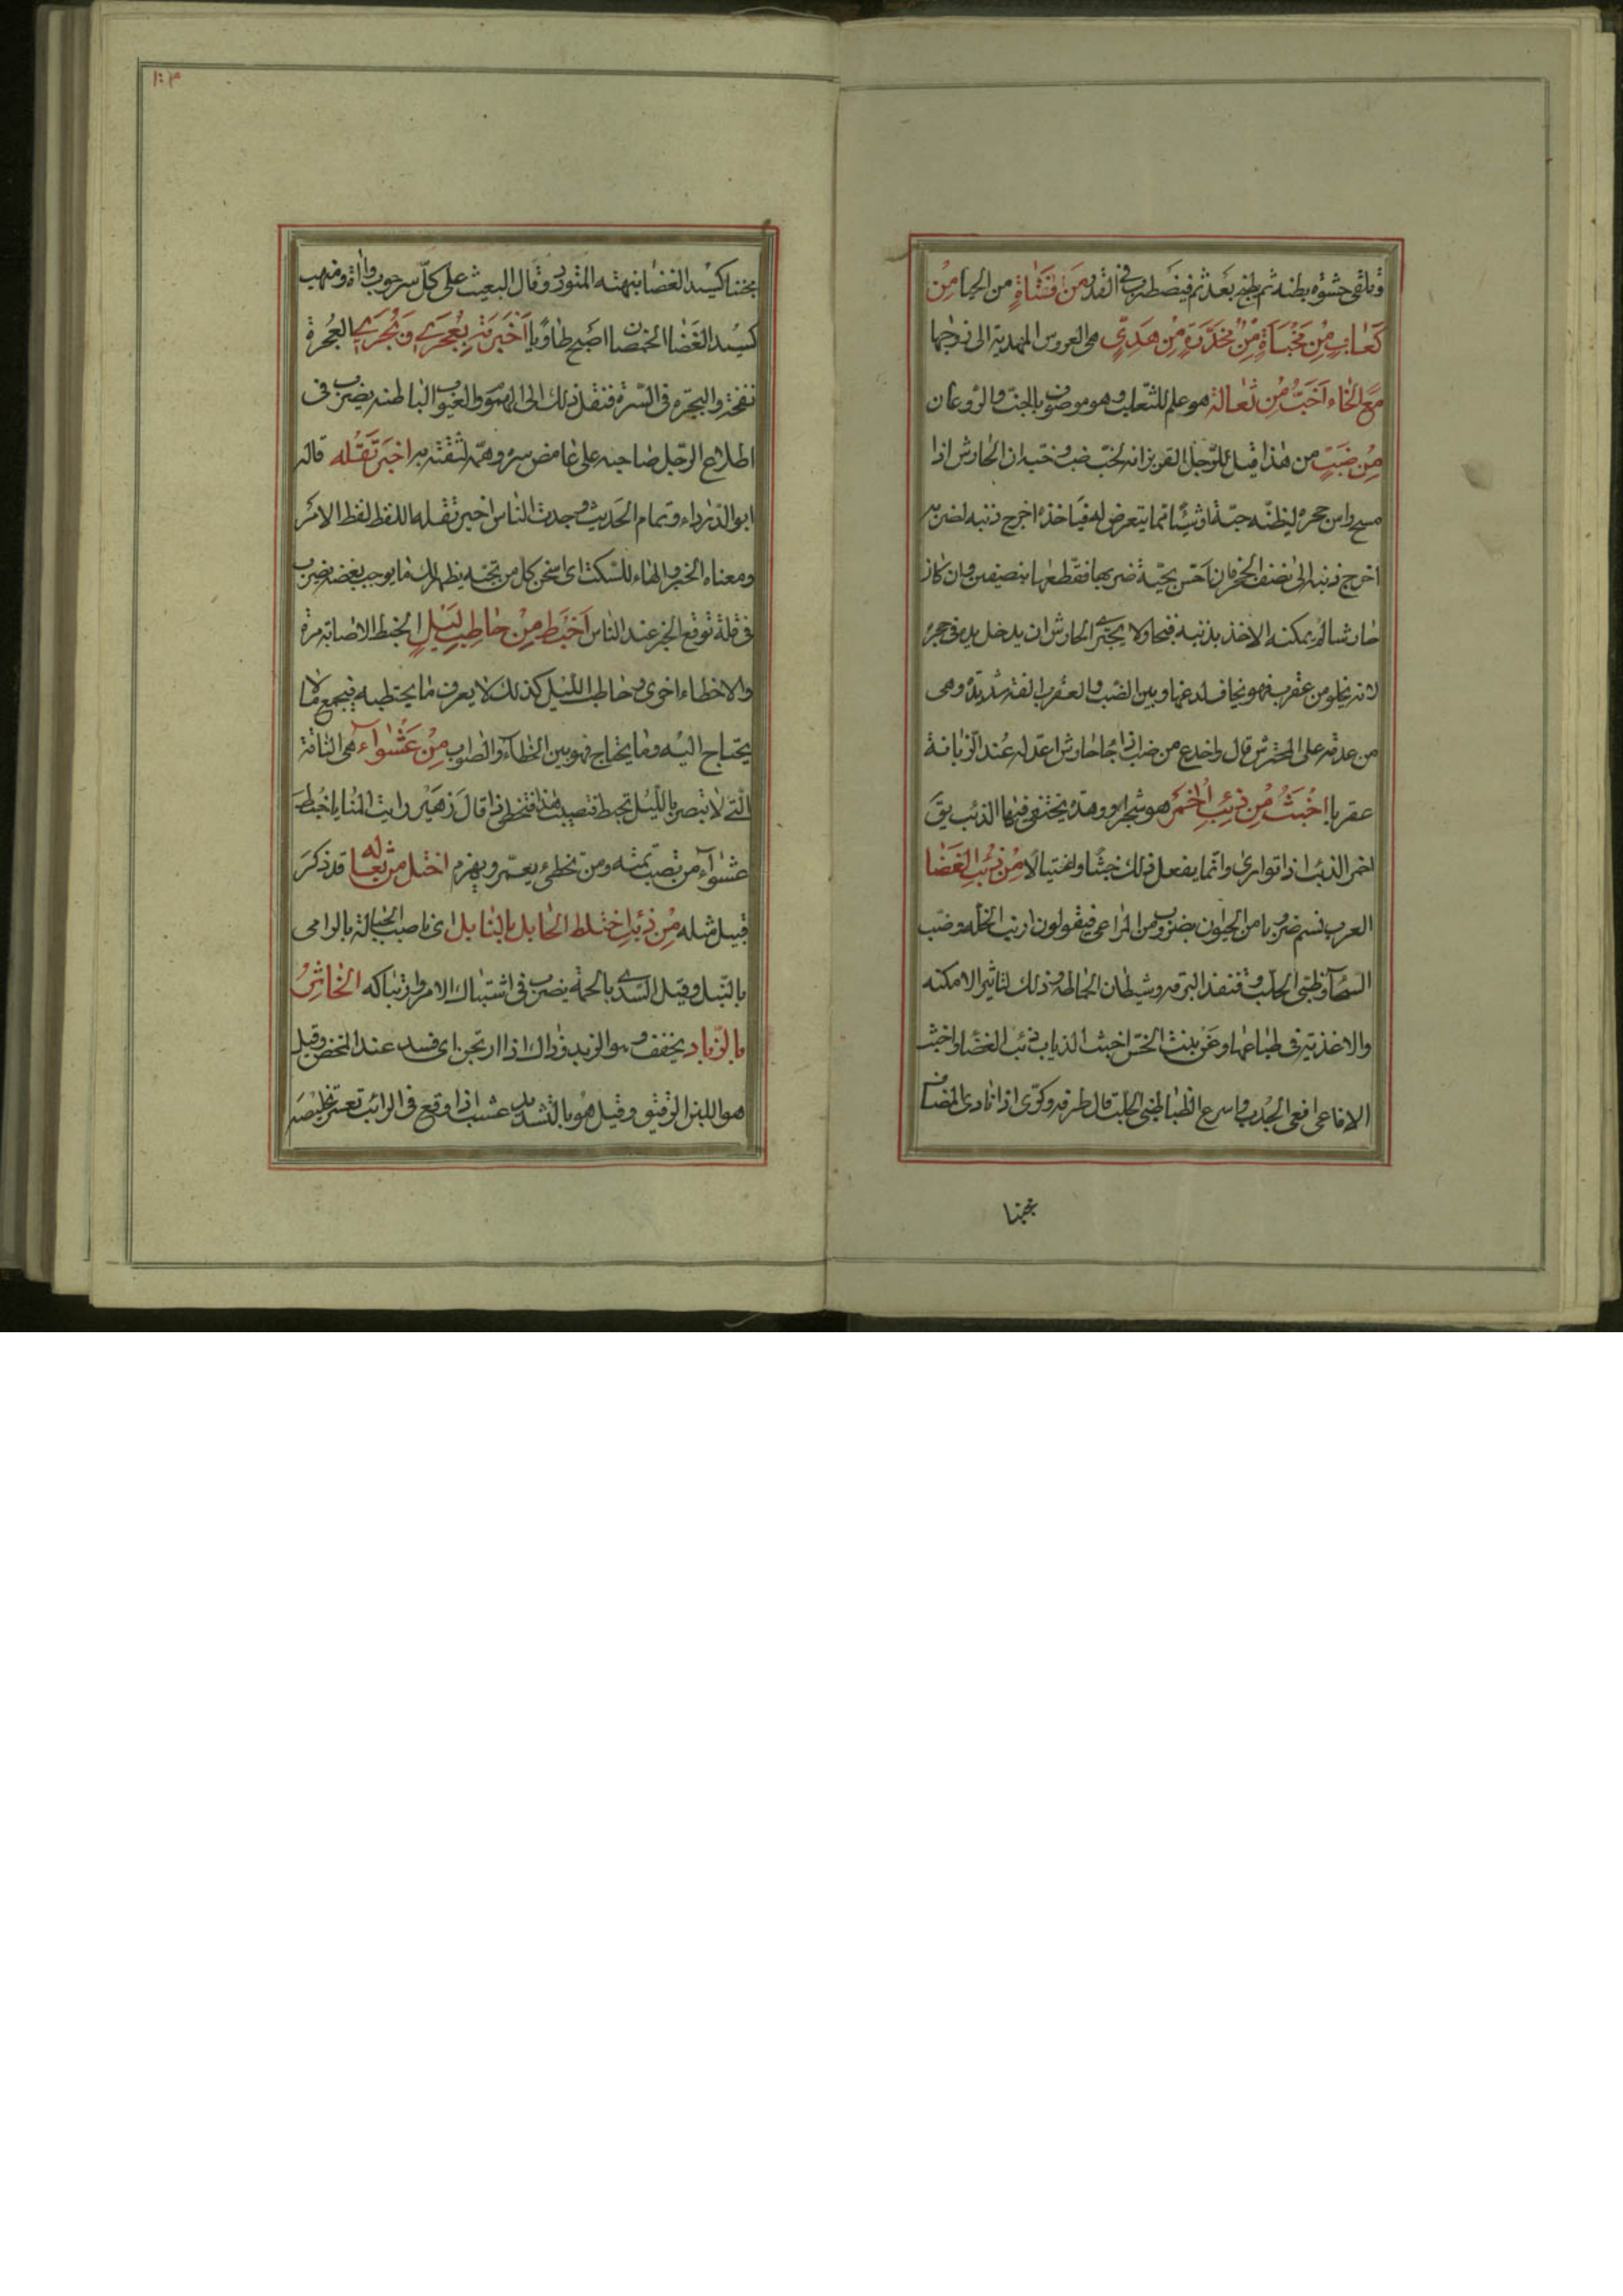 وتلقى حشوة بطنه ثم يطبخ بعد ثم فيضطرب في القدر من فتاة من الحيا من
كعاب من مخبأة من مخدرة من هدي هي العروس المهدية الى زوجها
مع الخاء اخب من ثعالة هو علم للثعلب وهو موصوف بالخب والروغان
من ضب من هذا قيل للرجل انه لخب ضب وخبه ان الحارش اذا
مسح راس حجره ليظنه حية او شيئا انما يتعرض له فياخذه اخرج ذنبه لضربه
اخرج ذنبه الى نصف الحجر فان احس بحية ضربها فقطعها بنصفين وان كان
حارشا لم يمكنه الاخذ بذنبه فنجا ولا يجترئ الحارش ان يدخل يده في حجره
لانه يخلو من عقرب فهو يخاف لدغها وبين الضب والعقرب الفة شديدة وهى
من عدته على المحترش قال واخدع من ضب اذا جا حارش اعد له عند الذبابة
عقربا اخبث من ذئب الخمر هو شجر او وهدة يختفي فيها الذئب يق
اخمر الذئب اذا توارى وانما يفعل ذلك خبثا واغتيالا من ذئب الغضا
العرب تسم ضروبا من الحيوان بضروب من المراعي فيقولون ارنب الخلة وضب
السحا وظبي الحلب وقنفذ البرقة وشيطان الحماطة وذلك لتاثير الامكنه
والاغذية في طباعها وعن بنت الخس اخبث الذياب ذئب الغضا واخبث
الافاعى افعى الجدب واسرع الظبا ظبي الحلب قال طرفة وكرى اذا نادى المضاف
محنبا
١٠٣
محنبا كسيد الغضا نبهته المتورد وقال البعيث على كل سرحوب واة ومنهب
كسيد الغضا الخمصان اصبح طاويا اخبرته بعجري وبجري العجرة
نفخة والبجرة في السرة فنقل ذلك الى الهموم والعيوب الباطنه يضرب في
اطلاع الرجل صاحبه على غامض سره وهمه لثقته به اخبر تقله قاله
ابو الدرداء وتمام الحديث وجدت الناس اخبر تقله اللفظ لفظ الامر
ومعناه الخبر والهاء للسكت اى من كل من تخبه يظهر لك ما يوجب بغضه يضرب
في قلة توقع الخير عند الناس اخبط من حاطب ليل الخبط الاصابة مرة
والاخطاء اخرى وحاطب الليل كذلك لا يعرف ما يحتطبه فيجمع ما لا
يحتاج اليه وما يحتاج فهو بين الخطاء والصواب من عشوآء هي الناقة
التي لا تبصر بالليل تخبط فتصيب هذا فتخطى ذا قال زهير رايت المنايا خبط
عشوآء من تصب تمته ومن تخطئ يعمر ويهرم اختل من ثعاله قد ذكر
قيل مثله من ذئب اختلط الحابل بالنابل اى ناصب الحبالة بالرامى
بالنبل وقيل السدى بالحمة يضرب في اشتباك الامر وارتباكه الخاثر
بالزباد يخفف وهو الزبد وذاك اذا ارتجن اى فسد عند المخض وقيل
هو اللبن الرقيق وقيل هو بالتشديد عشب اذا وقع في الرائب تعسر تخليصه